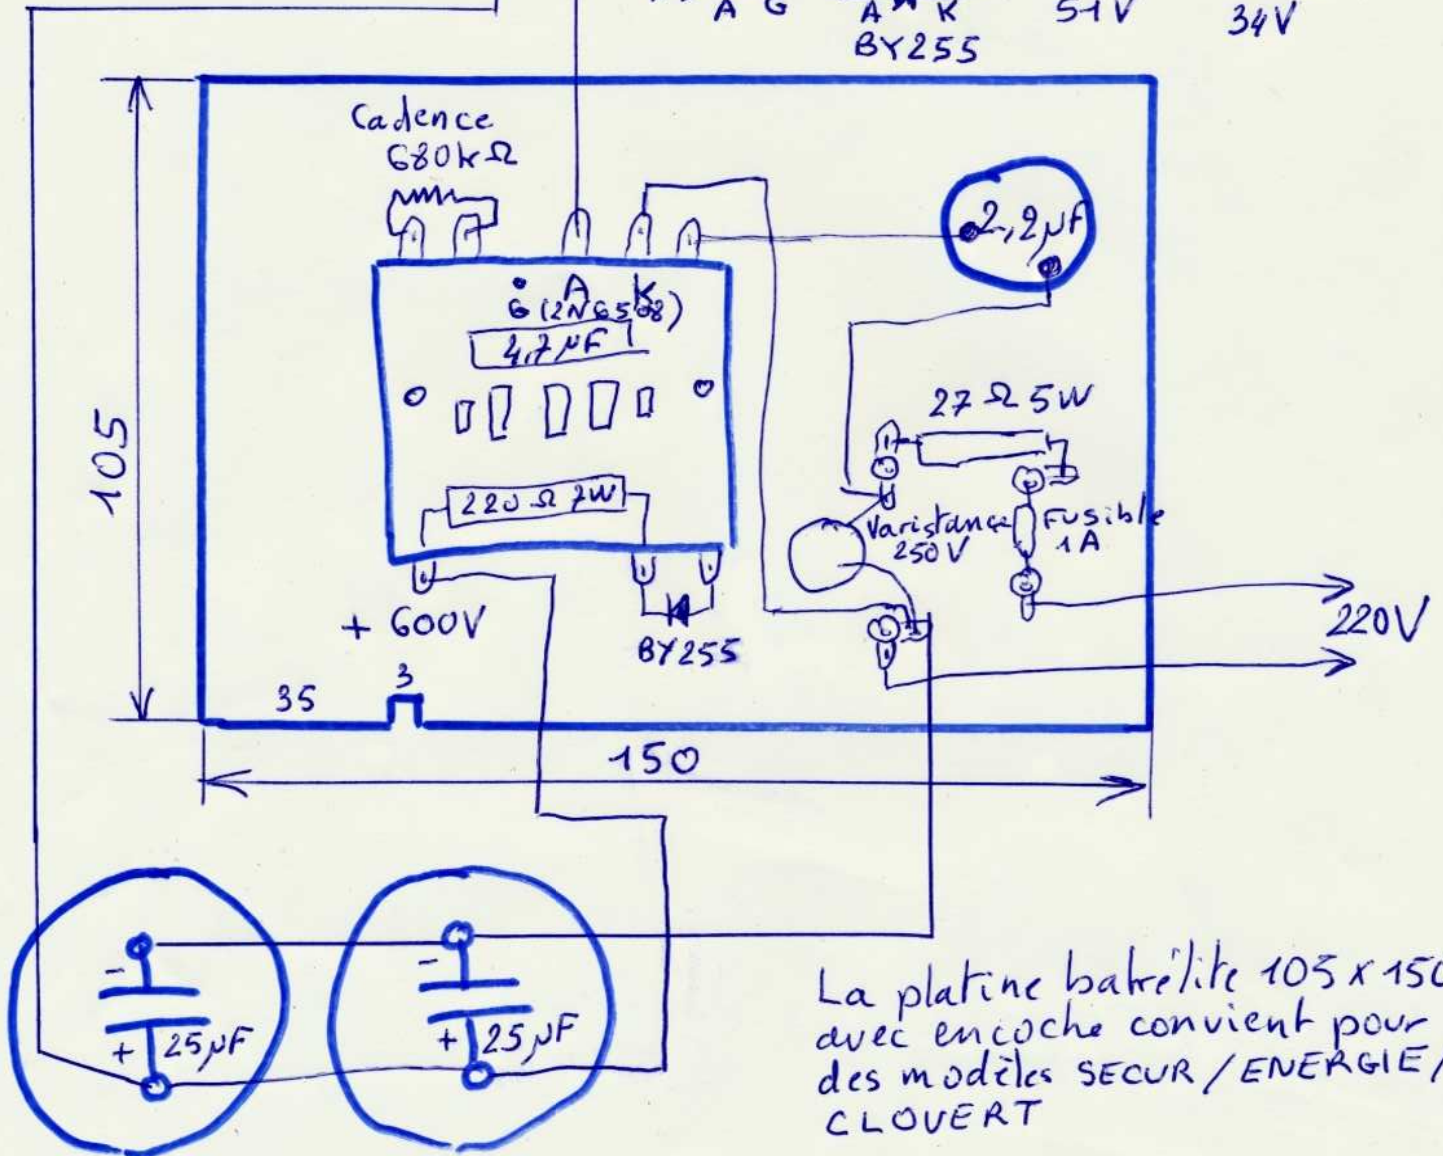 A G A K 51V 34V
BY255
Cadence
680kΩ
2,2µF
G A K
(2N6508)
4,7µF
27Ω 5W
105
220Ω 7W
Varistance
250V
Fusible
1A
+ 600V
BY255
220V
35 3
150
- -
+ 25µF + 25µF
La platine bakélite 105 x 150
avec encoche convient pour
des modèles SECUR / ENERGIE /
CLOVERT